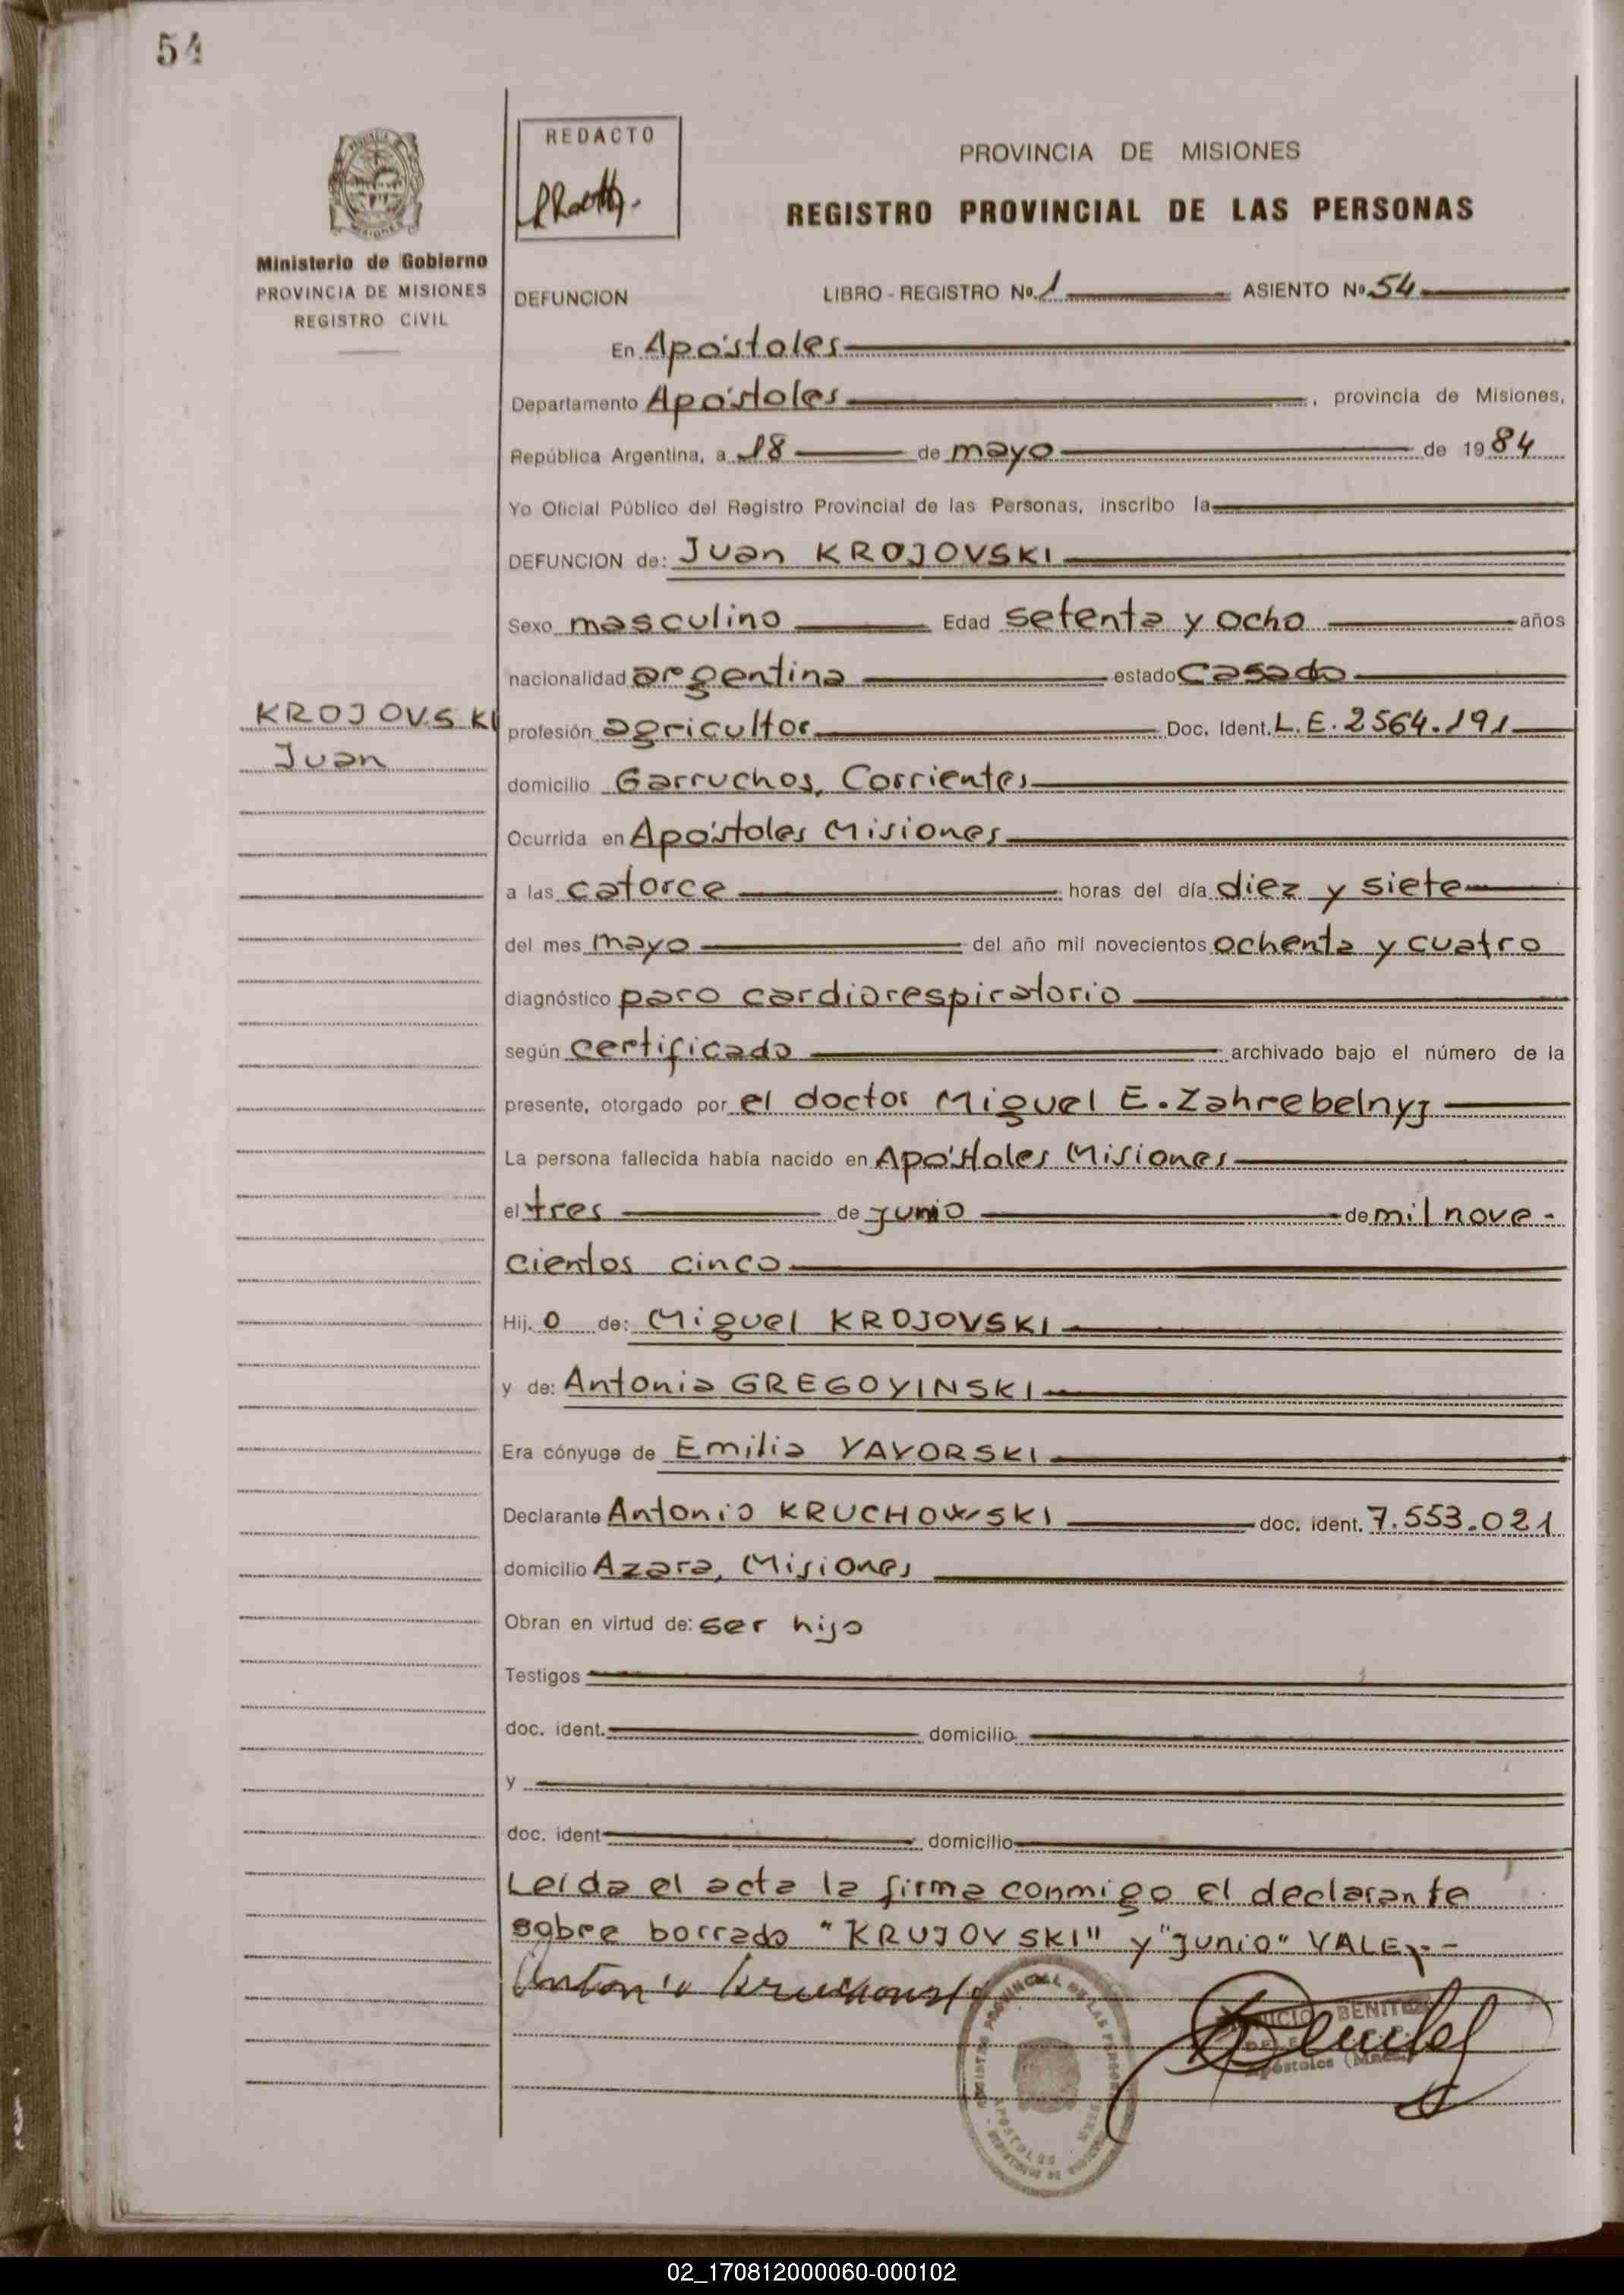 54
REDACTO
PROVINCIA DE MISIONES
REGISTRO PROVINCIAL DE LAS PERSONAS
Ministerio de Gobierno
PROVINCIA DE MISIONES
REGISTRO CIVIL
DEFUNCION LIBRO - REGISTRO Nº 1 ASIENTO Nº 54
En Apóstoles
Departamento Apóstoles, provincia de Misiones,
República Argentina, a 18 de mayo de 1984
Yo Oficial Público del Registro Provincial de las Personas, inscribo la
DEFUNCION de: Juan KROJOVSKI
Sexo masculino Edad setenta y ocho años
nacionalidad argentina estado casado
KROJOVSKI
Juan
profesión agricultor Doc. Ident. L.E. 2564.191
domicilio Garruchos, Corrientes
Ocurrida en Apóstoles Misiones
a las catorce horas del día diez y siete
del mes mayo del año mil novecientos ochenta y cuatro
diagnóstico paro cardiorespiratorio
según certificado archivado bajo el número de la
presente, otorgado por el doctor Miguel E. Zahrebelnyj
La persona fallecida había nacido en Apóstoles Misiones
el tres de junio de mil nove-
cientos cinco
Hij.o de: Miguel KROJOVSKI
y de: Antonia GREGOYINSKI
Era cónyuge de Emilia YAVORSKI
Declarante Antonio KRUCHOWSKI doc. ident. 7.553.021
domicilio Azara, Misiones
Obran en virtud de: ser hijo
Testigos
doc. ident. domicilio
y
doc. ident domicilio
Leída el acta la firma conmigo el declarante
sobre borrado "KRUJOVSKI" y "junio" VALE.--
Antonio Kruchowski
BENITEZ
Apóstoles
02_170812000060-000102